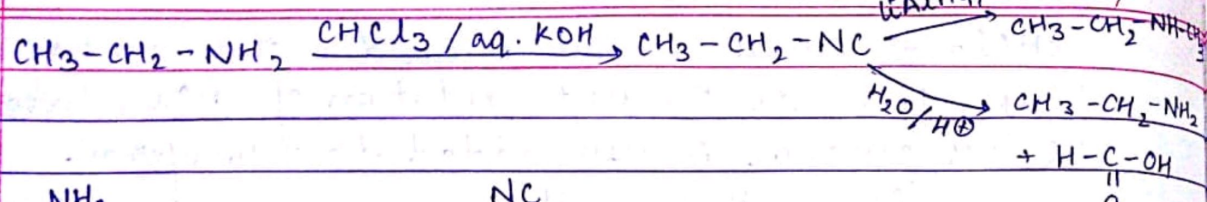 LiAlH4
CH3-CH2-NH2 CHCl3/aq. KOH CH3-CH2-NC CH3-CH2-NH-CH3
H2O/H⊕ CH3-CH2-NH2
+ H-C-OH
||
O
NH2 NC